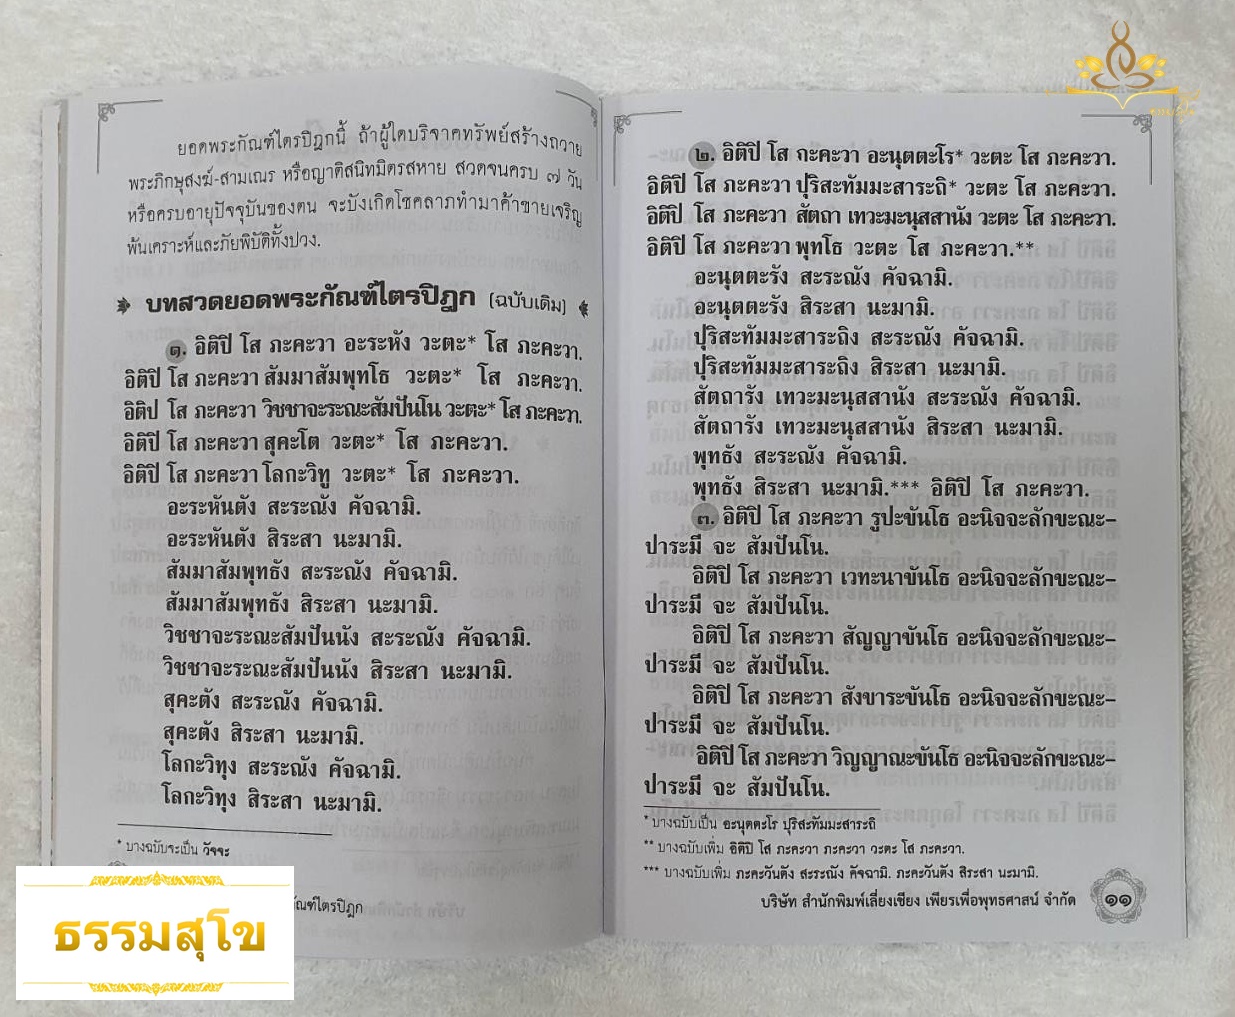 ยอดพระกัณฑ์ไตรปิฎกนี้ ถ้าผู้ใดบริจาคทรัพย์สร้างถวาย
พระภิกษุสงฆ์-สามเณร หรือญาติสนิทมิตรสหาย สวดจนครบ ๗ วัน
หรือครบอายุปัจจุบันของตน จะบังเกิดโชคลาภทำมาค้าขายเจริญ
พ้นเคราะห์และภัยพิบัติทั้งปวง.
บทสวดยอดพระกัณฑ์ไตรปิฎก (ฉบับเดิม)
๑. อิติปิ โส ภะคะวา อะระหัง วะตะ* โส ภะคะวา.
อิติปิ โส ภะคะวา สัมมาสัมพุทโธ วะตะ* โส ภะคะวา.
อิติป โส ภะคะวา วิชชาจะระณะสัมปันโน วะตะ* โส ภะคะวา.
อิติปิ โส ภะคะวา สุคะโต วะตะ* โส ภะคะวา.
อิติปิ โส ภะคะวา โลกะวิทู วะตะ* โส ภะคะวา.
อะระหันตัง สะระณัง คัจฉามิ.
อะระหันตัง สิระสา นะมามิ.
สัมมาสัมพุทธัง สะระณัง คัจฉามิ.
สัมมาสัมพุทธัง สิระสา นะมามิ.
วิชชาจะระณะสัมปันนัง สะระณัง คัจฉามิ.
วิชชาจะระณะสัมปันนัง สิระสา นะมามิ.
สุคะตัง สะระณัง คัจฉามิ.
สุคะตัง สิระสา นะมามิ.
โลกะวิทุง สะระณัง คัจฉามิ.
โลกะวิทุง สิระสา นะมามิ.
* บางฉบับจะเป็น วัจจะ
ัณฑ์ไตรปิฎก
ธรรมสุโข
๒. อิติปิ โส กะคะวา อะนุตตะโร* วะตะ โส ภะคะวา.
อิติปิ โส ภะคะวา ปุริสะทัมมะสาระถิ* วะตะ โส ภะคะวา.
อิติปิ โส ภะคะวา สัตถา เทวะมะนุสสานัง วะตะ โส ภะคะวา.
อิติปิ โส ภะคะวา พุทโธ วะตะ โส ภะคะวา.**
อะนุตตะรัง สะระณัง คัจฉามิ.
อะนุตตะรัง สิระสา นะมามิ.
ปุริสะทัมมะสาระถิง สะระณัง คัจฉามิ.
ปุริสะทัมมะสาระถิง สิระสา นะมามิ.
สัตถารัง เทวะมะนุสสานัง สะระณัง คัจฉามิ.
สัตถารัง เทวะมะนุสสานัง สิระสา นะมามิ.
พุทธัง สะระณัง คัจฉามิ.
พุทธัง สิระสา นะมามิ.*** อิติปิ โส ภะคะวา.
๓. อิติปิ โส ภะคะวา รูปะขันโธ อะนิจจะลักขะณะ-
ปาระมี จะ สัมปันโน.
อิติปิ โส ภะคะวา เวทะนาขันโธ อะนิจจะลักขะณะ-
ปาระมี จะ สัมปันโน.
อิติปิ โส ภะคะวา สัญญาขันโธ อะนิจจะลักขะณะ-
ปาระมี จะ สัมปันโน.
อิติปิ โส ภะคะวา สังขาระขันโธ อะนิจจะลักขะณะ-
ปาระมี จะ สัมปันโน.
อิติปิ โส ภะคะวา วิญญาณะขันโธ อะนิจจะลักขะณะ-
ปาระมี จะ สัมปันโน.
* บางฉบับเป็น อะนุตตะโร ปุริสะทัมมะสาระถิ
** บางฉบับเพิ่ม อิติปิ โส ภะคะวา ภะคะวา วะตะ โส ภะคะวา.
*** บางฉบับเพิ่ม ภะคะวันตัง สะระณัง คัจฉามิ. ภะคะวันตัง สิระสา นะมามิ.
บริษัท สำนักพิมพ์เลี่ยงเชียง เพียรเพื่อพุทธศาสน์ จำกัด ๑๑